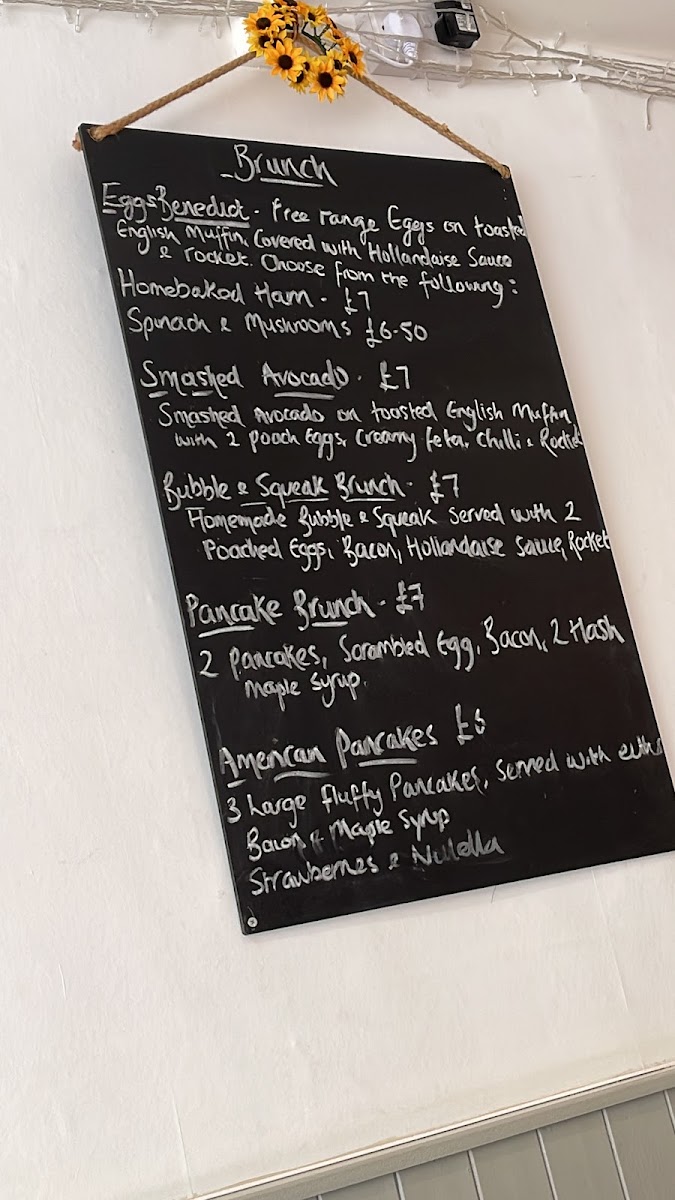 Brunch
Eggs Benedict - free range Eggs on toasted
English Muffin, Covered with Hollandaise Sauce
& rocket. Choose from the following:
Homebaked Ham - £7
Spinach & Mushrooms £6-50
Smashed Avocado - £7
Smashed Avocado on toasted English Muffin
with 2 poach Eggs, Creamy feta, Chilli & Rocket
Bubble & Squeak Brunch - £7
Homemade Bubble & Squeak Served with 2
Poached Eggs, Bacon, Hollandaise Sauce, Rocket
Pancake Brunch - £7
2 Pancakes, Scrambled Egg, Bacon, 2 Hash
Maple Syrup.
American Pancakes £6
3 Large Fluffy Pancakes, Served with either
Bacon & Maple Syrup
Strawberries & Nutella